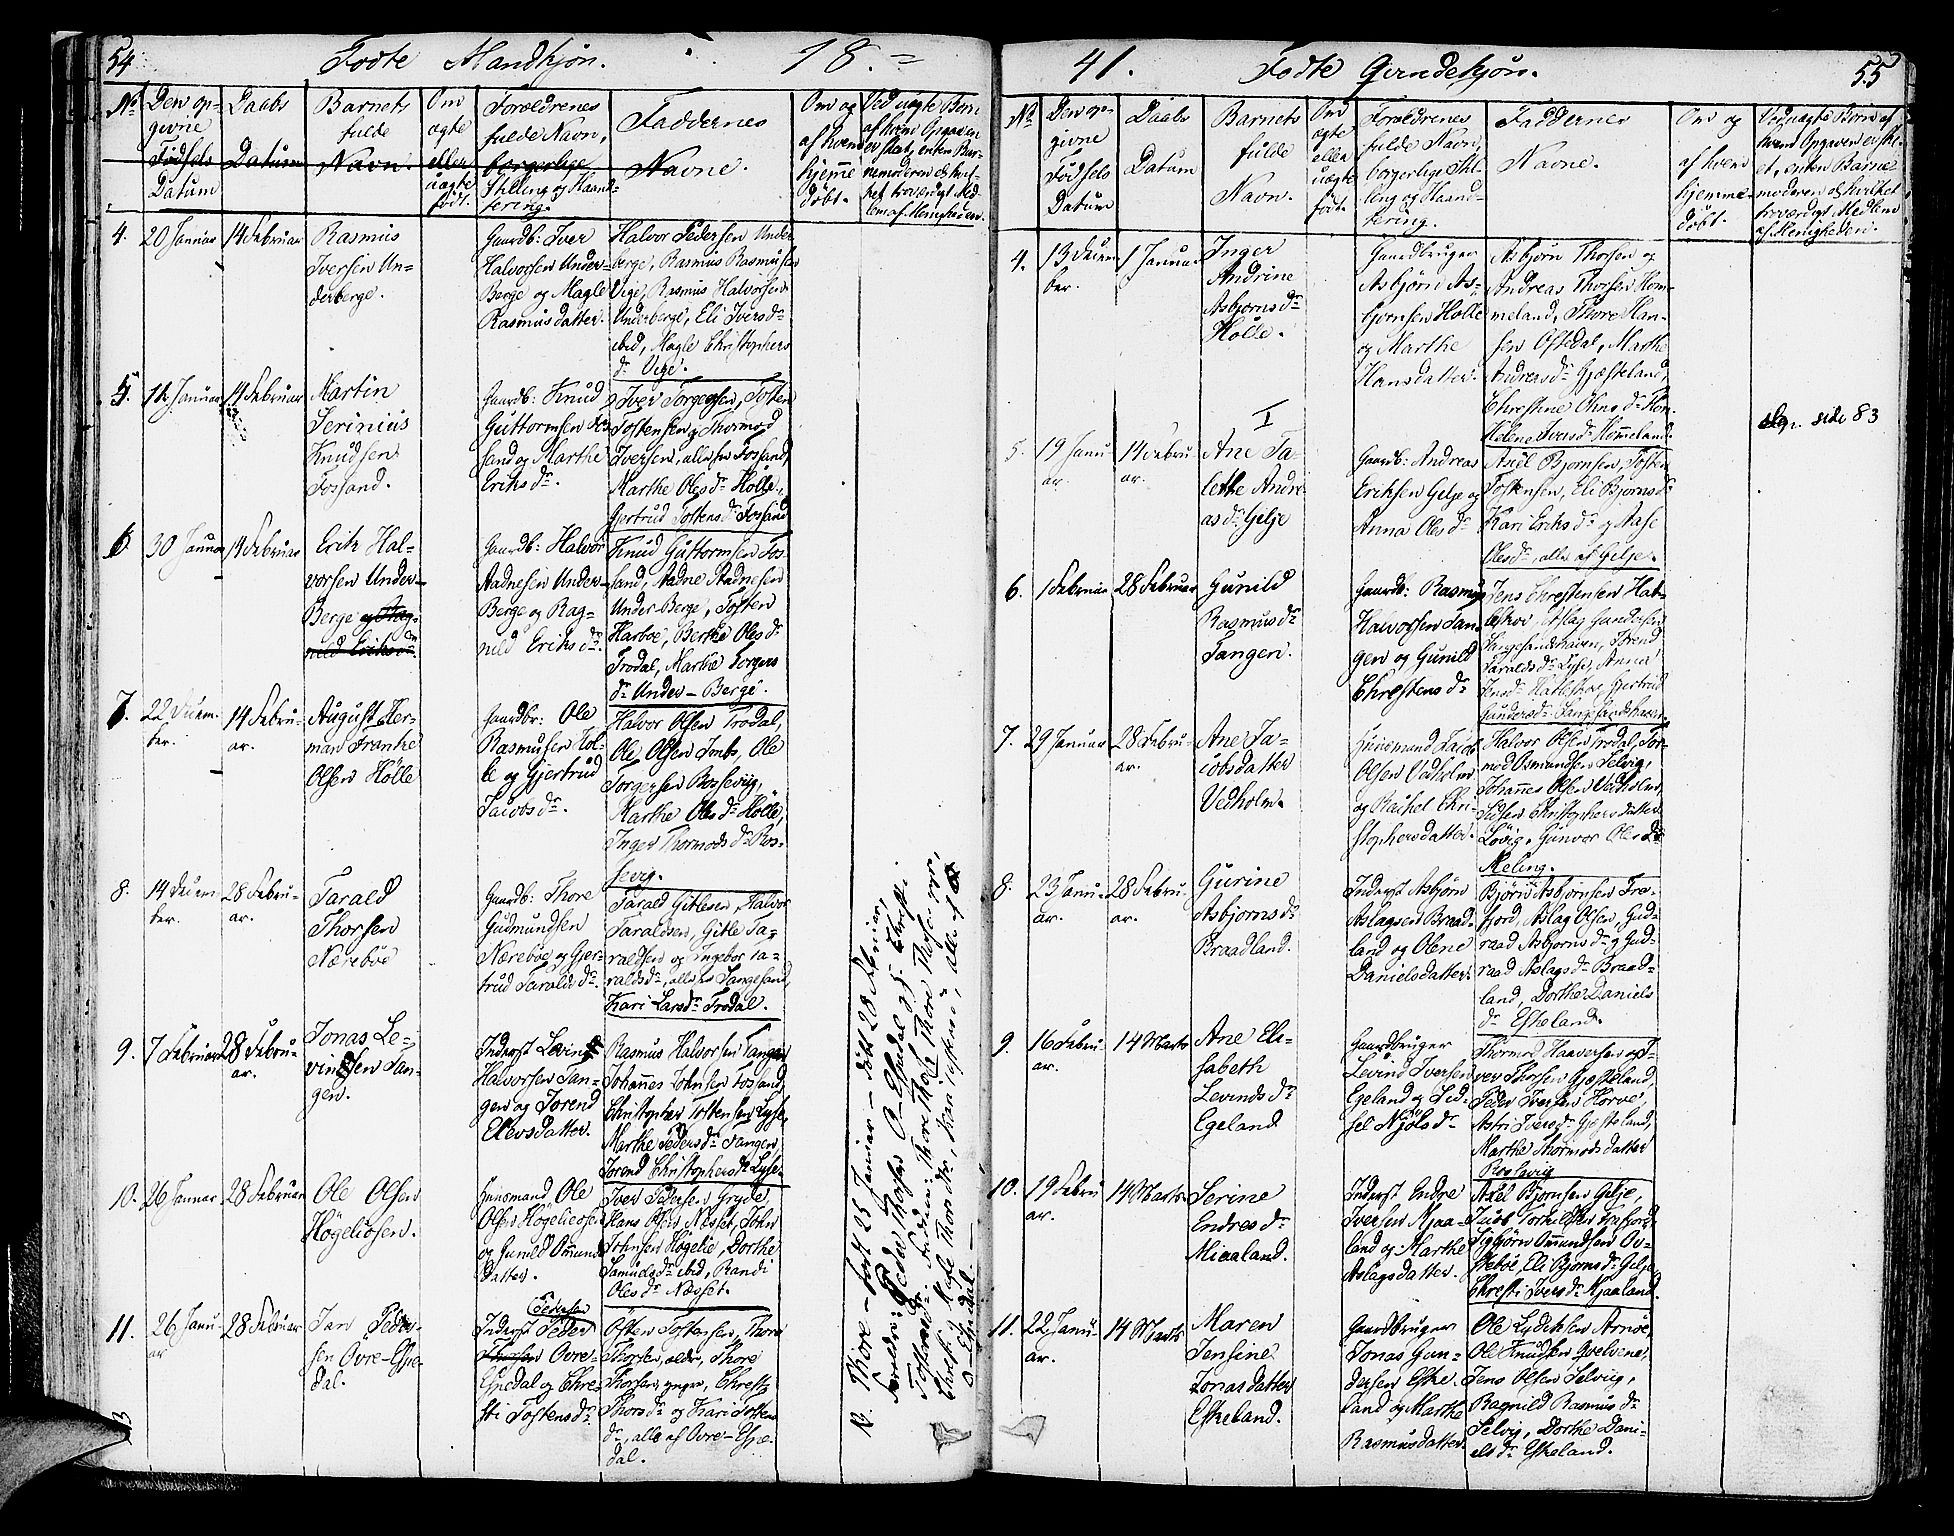 54
Fødte Mandkjøn.
18.
No.
Den opgivne Fødsels Datum
Daabs Datum
Barnets fulde Navn.
Om ægte eller uægte født.
Forældrenes fulde Navn, borgerlige Stilling og Haandtering.
Faddernes Navne.
Om og af hvem hjemme døbt.
4.
20 Januar
14 Februar
Rasmus
Iversen Un-
derberge.
Gaardb: Iver
Halvorsen Under-
Berge og Magle
Rasmusdatter.
Halvor Pedersen Under
berge, Rasmus Rasmusen
Vige, Rasmus Halvorsen
Underberge, Eli Iversdr
ibid, Magle Christophers
dr Vige.
5.
14 Februar
Martin
Serinius
Knudsen
Fossand.
Gaardb: Knud
Guttormsen Fos-
sand og Marthe
Eriksdr.
Iver Torgersen, Tosten
Tostensen og Thormod
Iversen, alle fra Fossand,
Marthe Olesdr Hölle,
Gjertrud Tostensdr Fossand
6.
30 Januar
14 Februar
Erik Hal-
vorsen Under-
Berge og Rag-
nild Eriksdr.
Gaardb: Halvor
Aadnesen Under-
Berge og Rag-
nild Eriksdr.
Knud Guttormsen Fos-
sand, Aadne Aadnesen
Under-Berge, Tosten
Harboe, Berthe Olesdr
Frodal, Marthe Torgers
dr Under-Berge.
7.
22 Decem-
ber.
14 Febru-
ar.
August Her-
man Franke
Olsen Hölle
Gaardbr: Ole
Rasmusen Höl-
le og Gjertrud
Jacobsdr.
Halvor Olsen Frodal,
Ole Olsen Tonb, Ole
Torgersen Rossevig,
Marthe Olesdr Hölle,
Inger Thormodsdr Ros-
sevig.
8.
14 Decem
ber.
28 Febru-
ar.
Tarald
Thorsen
Nærebøe
Gaardb: Thore
Gudmundsen
Nærebøe og Gjer-
trud Taraldsdr.
Tarald Gitlesen, Halvor
Taraldsen, Gitle Ta-
raldsen og Ingebor Ta-
raldsdr, alle fra Sangesand,
Kari Larsdr Frodal.
9.
7 Februar
28 Febru-
ar.
Jonas Le-
vindsen Tan-
gen.
Inderst Levind
Halvorsen Tan-
gen og Jorend
Elevsdatter.
Rasmus Halvorsen Tangen
Johannes Johnsen Fossand
Christopher Tostensen Lyse,
Marthe Pedersdr Tangen
Jorend Christophersdr Lyse.
10.
26 Januar
28 Februar
Ole Olsen
Høgeliosen.
Huusmand Ole
Olsen Høgeliosen
og Gunild Ommunds
datter.
Iver Petersen Gryde,
Hans Olsen Næsset, John
Johnsen Høgelie, Dorthe
Samuelsdr ibid, Randi
Olesdr Næsset.
11.
26 Janu-
ar
28 Februar
Jan Peder-
sen Øvre-Espe-
dal.
Pedersen
Inderst Peder
Thorsen Øvre-
Espedal og Chre-
sti Tostensdr.
Østen Tostensen, Thore
Thorsen, ældr, Thore
Thorsen, yngre, Chresti
Thorsdr og Kari Tosten
dr, alle af Øvre-Espe-
dal.
N. Thore - født 25 Januar - døbt 28 Februar,
41.
Fødte Qvindekjøn.
55
No.
Den op-
givne
Fødsels
Datum
Daabs
Datum
Barnets
fulde
Navn.
Om
ægte
eller
uægte
født.
Forældrenes
fulde Navn,
borgerlige Stil-
ling og Haand-
tering.
Faddernes
Navne.
Om og
af hvem
hjemme-
døbt.
4.
13 Decem
ber.
1 Januar
Inger
Andrine
Asbjørnsdr
Hölle.
Gaardbruger
Asbjørn As-
bjørnsen Hölle
og Marthe
Hansdatter.
Asbjørn Thorsen og
Andreas Thorsen Hom-
meland, Thore Han-
sen Oftedal, Marthe
Andreasdr Gjesteland,
Helene Iversdr Hommeland.
side 83
I
5.
19 Janu
ar.
14 Febru
ar.
Ane Ta-
lette Andre
asdr Gelje
Gaardb: Andreas
Eriksen Gelje og
Anna Olesdr
Axel Bjørnsen, Tosten
Tostensen, Eli Bjørnsdr
Kari Eriksdr og Aase
Olesdr, alle af Gelje.
6.
1 Februar
28 Februar
Gunild
Rasmusdr
Tangen.
Gaardb: Rasmus
Halvorsen Tan-
gen og Gunild
Chrestensdr
Jens Chrestensen Hat-
leskov, Aslag Gundersen
Sangesandshaven, Jorend
Taraldsdr Lyse, Anna
Jensdr Hatleskov, Gjertrud
Gundersdr Sangesandshaven
7.
29 Januar
28 Febru-
ar.
Ane Ja-
cobsdatter
Vedholm.
Huusmand Jacob
Olsen Vedholm
og Rachel Chri-
stophersdatter.
Halvor Olsen Frodal, Tor-
mod Osmundsen Selvig,
Johannes Olsen Vedholm,
Lövig, Gunvor Olesdr
Meling.
8.
23 Janu-
ar.
28 Febru-
ar.
Gurine
Asbjørnsdr
Braadland.
Inderst Asbjørn
Aslagsen Braad-
land og Olene
Danielsdatter.
Bjørn Asbjørnsen Fra-
fjord, Aslag Olsen, Gud-
raad Asbjørnsdr og Gud-
raad Aslagsdr Braad-
land, Dorthe Daniels
dr Eskeland.
9.
16 Febru-
ar.
14 Marts
Ane Eli-
sabeth
Levindsdr
Egeland
Gaardbruger
Levind Iversen
Egeland og Sid-
sel Njölsdr
Thormod Haaversen og I-
ver Thorsen Gjesteland,
Peder Iversen Horve,
Astri Iversdr Gjesteland,
Marthe Thormodsdatter
Roslavig
10.
19 Febru
ar.
14 Marts
Serine
Endresdr
Miaaland.
Inderst Endre
Iversen Mjaa-
land og Marthe
Aslagsdatter.
Axel Bjørnsen Gelje,
Sigbjørn Ommundsen Øv-
stebøe, Eli Bjørnsdr Gelje
Chresti Iversdr Mjaaland.
11.
22 Janu-
ar.
14 Marts
Maren
Jensine
Jonasdatter
Eskeland.
Gaardbruger
Jonas Gun-
dersen Eske-
land og Marthe
Rasmusdatter.
Ole Lydeksen Arnøe,
Ole Knudsen Qvelvene,
Jens Olsen Selvig,
Ragnild Rasmusdr
Selvig, Dorthe Dani-
elsdr Eskeland.